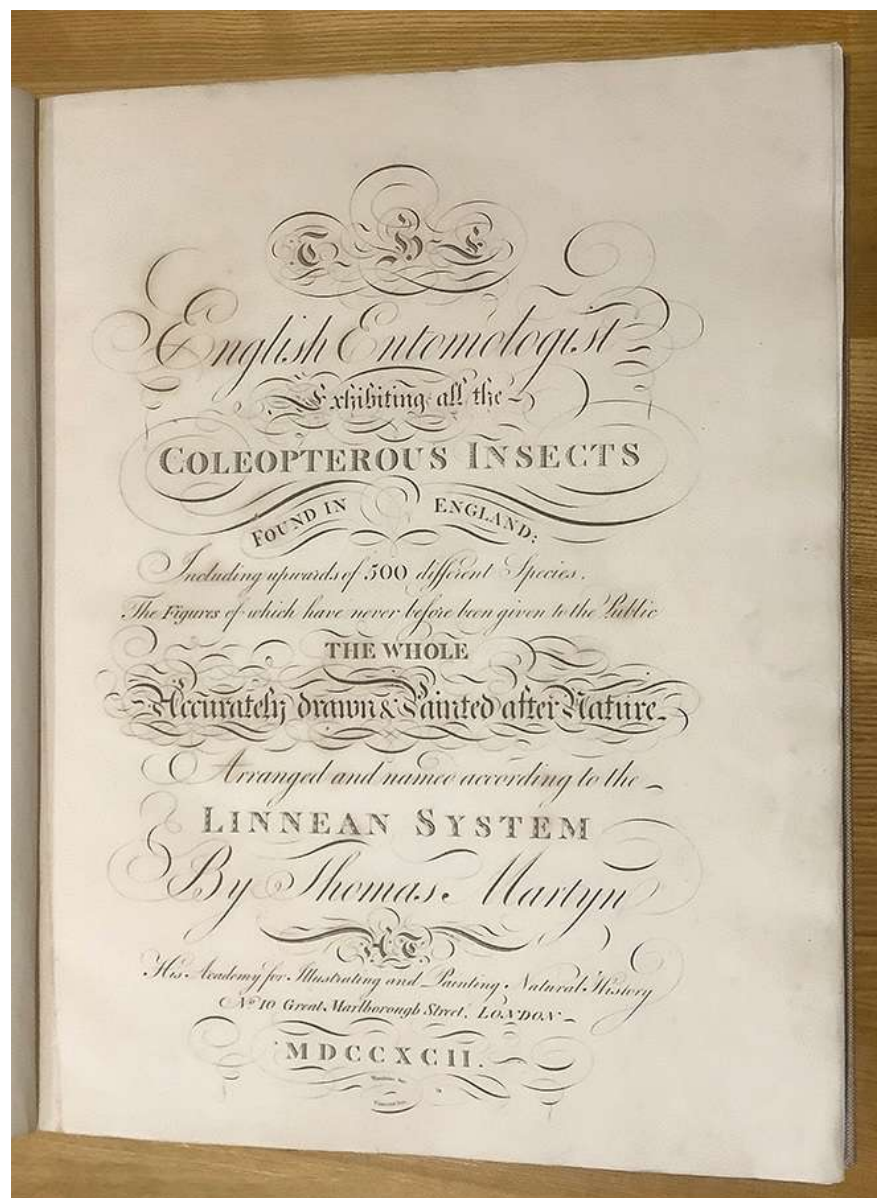 THE
English Entomologist
Exhibiting all the
COLEOPTEROUS INSECTS
FOUND IN ENGLAND:
Including upwards of 500 different Species.
The Figures of which have never before been given to the Public
THE WHOLE
Accurately drawn & Painted after Nature.
Arranged and named according to the
LINNEAN SYSTEM
By Thomas Martyn
AT
His Academy for Illustrating and Painting Natural History
No 10 Great Marlborough Street, LONDON
MDCCXCII.